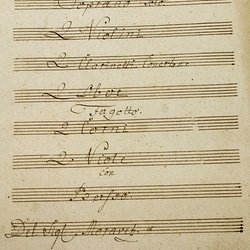 Soprano Solo
2 Violini
2 Clarinetti
2 Oboe
Fagotto
2 Corni
2 Viole
con
Basso
Del Sigl.